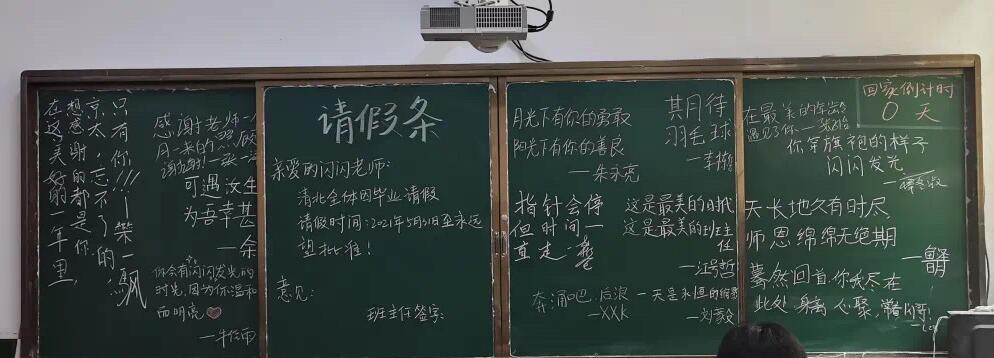 只有你!!!
京太,忘不了
想感谢的都是你的
在这美好的一年里,
感谢老师一
月一来的照顾
谢谢!
可遇汝生
为吾幸甚
一余
你会有闪闪发光的
时光,因为你温和
而明亮
请假条
亲爱的闪闪老师:
清北全体因毕业请假
请假时间:2021年5月31日至永远
望批准!
意见:
班主任签字
月光下有你的勇敢
阳光下有你的善良
—朱永亮
其月待
羽毛球
指针会停
但时间一
直走
这是最美的时代
这是最美的班主
任
—江号哲
奔涌吧 后浪
—XXK
一天是永恒的缩影
回家倒计时
0 天
在最美的年龄
遇见了你
你穿旗袍的样子
闪闪发光
天长地久有时尽
师恩绵绵无绝期
蓦然回首,你我尽在
此处 身离心聚,